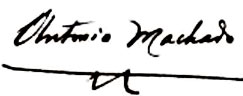 Antonio Machado